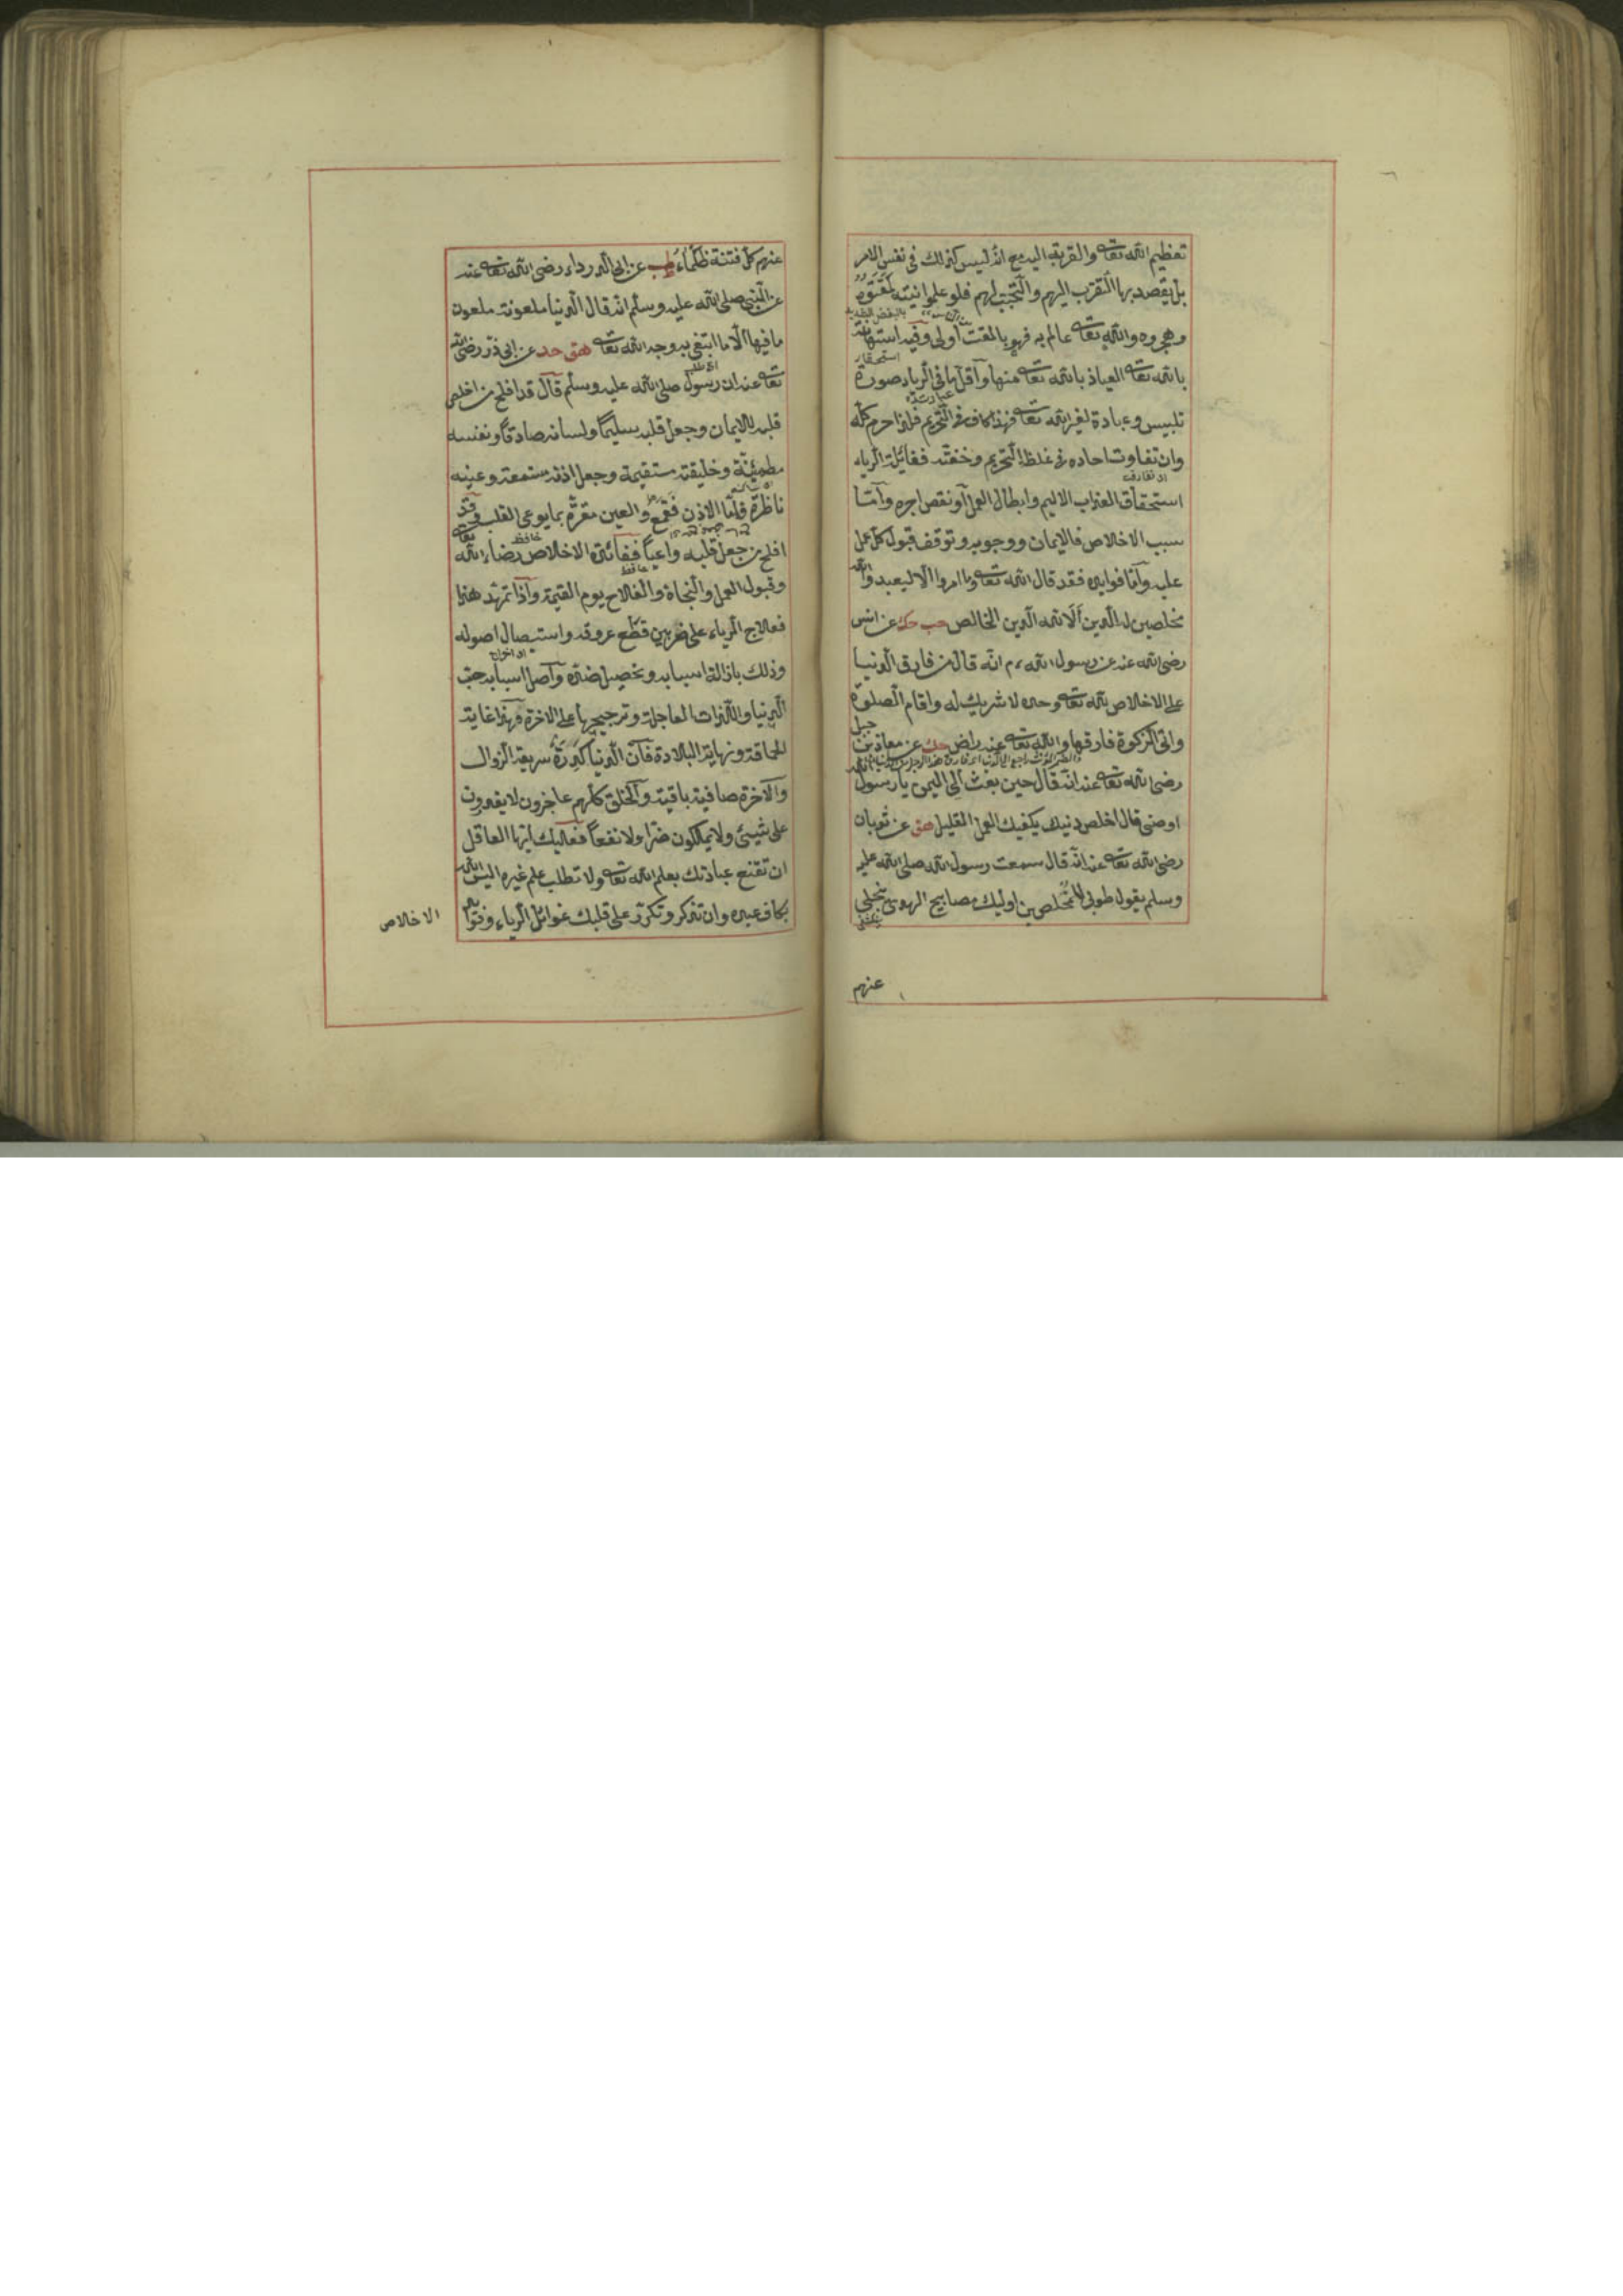 تعظيم الله تعا والقربة اليه مع انه ليس كذلك في نفس الامر
بل يقصد بها التقرب اليهم والتحبب لهم فلو علموا نيته لمقتوه
وهجروه والله تعا عالم به فهو بالمقت اولى وفيه استهانة
استحقار
بالله تعا العياذ بالله تعا منها واقل ما في الرياء صورة
تلبيس وعبادة لغير الله تعا فهذا كاف في التحريم فلذا حرم كله
وان تفاوت احاده في غلظ التحريم وخفته فغائلة الرياء
استحقاق العذاب الاليم وابطال العمل او نقص اجره واما
سبب الاخلاص فالايمان ووجوبه وتوقف قبول كل عمل
عليه واما فوايده فقد قال الله تعا وما امروا الا ليعبدوا الله
مخلصين له الدين الا لله الدين الخالص حب حك عن انس
رضي الله عنه عن رسول الله ،م انه قال من فارق الدنيا
على الاخلاص لله تعا وحده لا شريك له واقام الصلوة
واتى الزكوة فارقها والله تعا عنه راض حك عن معاذ بن جبل
رضي الله تعا عنه انه قال حين بعث الى اليمن يا رسول الله
اوصني قال اخلص دينك يكفيك العمل القليل هق عن ثوبان
رضي الله تعا عنه انه قال سمعت رسول الله صلى الله عليه
وسلم يقول طوبى للمخلصين اوليك مصابيح الهدى تنجلي
عنهم
عنهم كل فتنة ظلماء طب عن ابي الدرداء رضي الله تعا عنه
عن النبي صلى الله عليه وسلم انه قال الدنيا ملعونة ملعون
ما فيها الا ما ابتغي به وجه الله تعا هق حد عن ابي ذر رضي الله
تعا عنه ان رسول صلى الله عليه وسلم قال قد افلح من اخلص
قلبه للايمان وجعل قلبه سليما ولسانه صادقا ونفسه
مطمئنة وخليقته مستقيمة وجعل اذنه مستمعة وعينه
ناظرة فاما الاذن فقمع والعين مقرة بما يوعى القلب وقد
حافظ
افلح من جعل قلبه واعيا ففائدة الاخلاص رضاء الله تعا
حافظ
وقبول العمل والنجاة والفلاح يوم القيمة واذا تمهد هذا
فعلاج الرياء على ضربين قطع عروقه واستيصال اصوله
وذلك بازالة اسبابه وتحصيل ضده واصل اسبابه حب
الدنيا واللذات العاجلة وترجيحها على الاخرة فهذا غاية
الحماقة ونهاية البلادة فان الدنيا كدرة سريعة الزوال
والاخرة صافية باقية والخلق كلهم عاجزون لا يقدرون
على شيئ ولا يملكون ضرا ولا نفعا فعليك ايها العاقل
ان تقنع عبادتك بعلم الله تعا ولا تطلب علم غيره اليس الله
بكاف عبده وان تذكر وتكرر على قلبك غوائل الرياء وفوائد
الاخلاص